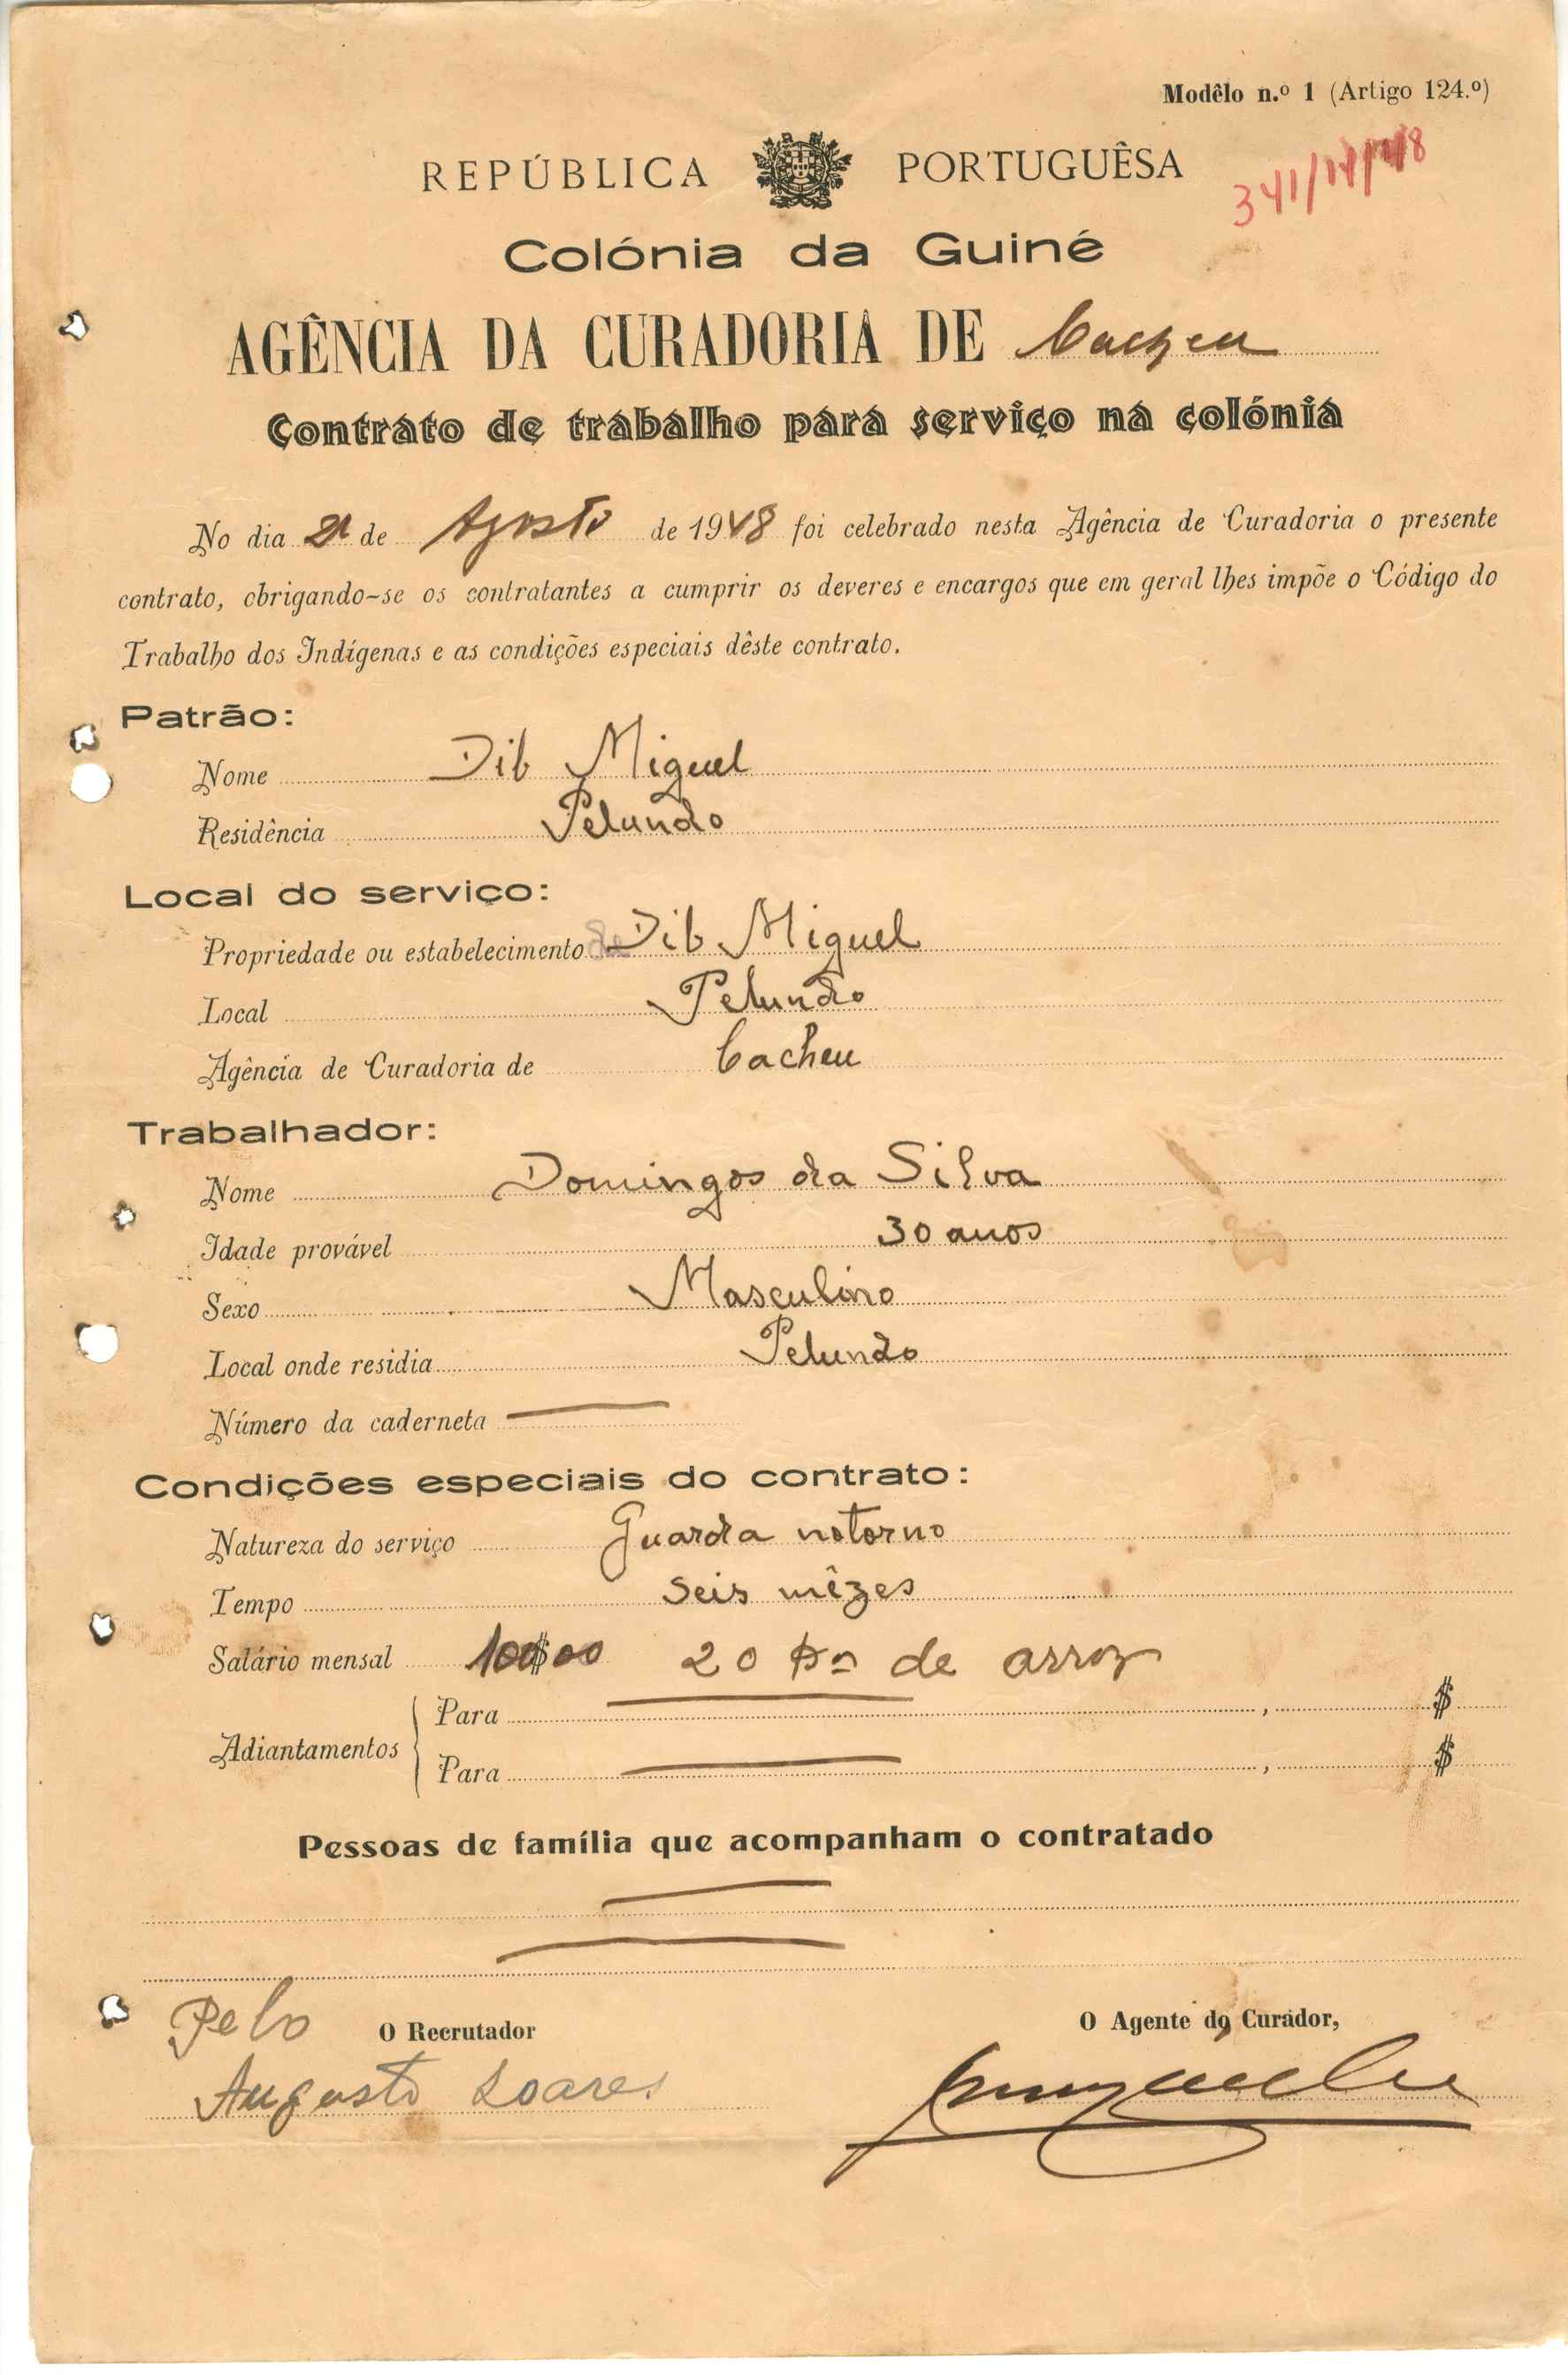 Modêlo n.º 1 (Artigo 124.º)
REPÚBLICA PORTUGUÊSA
Colónia da Guiné
AGÊNCIA DA CURADORIA DE Cacheu
Contrato de trabalho para serviço na colónia
No dia de Agosto de 1948 foi celebrado nesta Agência de Curadoria o presente
contrato, obrigando-se os contratantes a cumprir os deveres e encargos que em geral lhes impõe o Código do
Trabalho dos Indígenas e as condições especiais dêste contrato.
Patrão:
Nome Dib Miguel
Residência Pelundo
Local do serviço:
Propriedade ou estabelecimento de Dib Miguel
Local Pelundo
Agência de Curadoria de Cacheu
Trabalhador:
Nome Domingos da Silva
Idade provável 30 anos
Sexo Masculino
Local onde residia Pelundo
Número da caderneta
Condições especiais do contrato:
Natureza do serviço Guarda notorno
Tempo seis mêzes
Salário mensal 100$00 20 de arroz
Adiantamentos
Para , $
Para , $
Pessoas de família que acompanham o contratado
Pelo O Recrutador
O Agente do Curador,
Augusto Soares